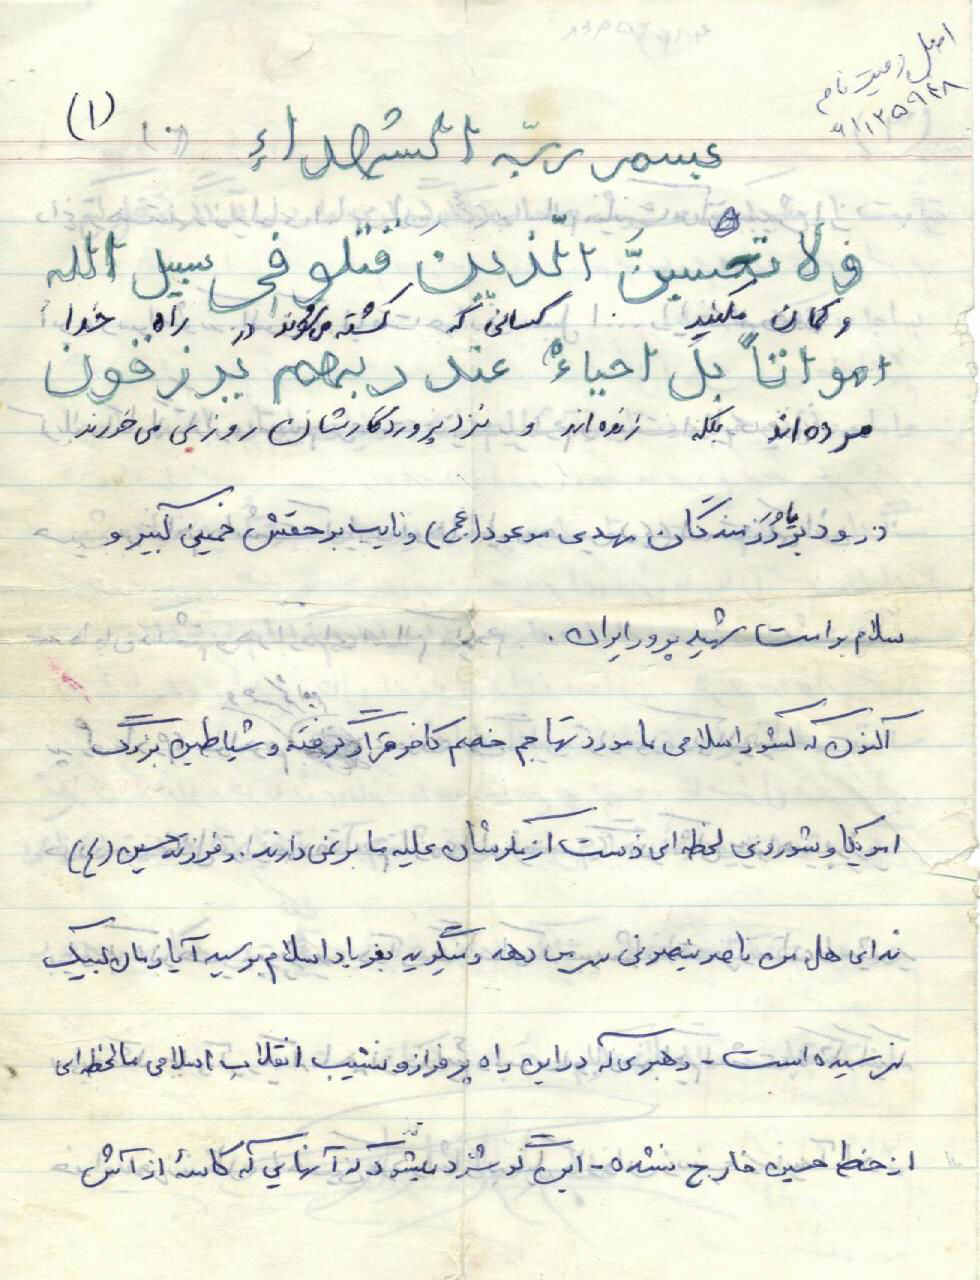 اصل وصیت نامه
(۱)
بسم ربّ الشهداء
ولا تحسبنَّ الّذین قتلو فی سبیل الله
و گمان مکنید کسانی که کشته می‌شوند در راه خدا
امواتاً بل احیاءٌ عند ربهم یرزقون
مرده‌اند بلکه زنده‌اند و نزد پروردگارشان روزی می‌خورند
درود بر رزمندگان مهدی موعود (عج) و نایب برحقش خمینی کبیر و
سلام بر امت شهید پرور ایران .
اکنون که کشور اسلامی ما مورد تهاجم خصم کافر قرار گرفته و شیاطین بزرگ
امریکا و شوروی لحظه‌ای دست از سرشان علیه ما بر نمی‌دارند. و فرزند حسین (ع)
ندای هل من ناصر ینصرنی سر می دهد و میگوید بفریاد اسلام برسید آیا زمان لبیک
نرسیده است - رهبری که در این راه پر فراز و نشیب انقلاب اسلامی ما لحظه‌ای
از خط حسین خارج نشده - این گوشزد میشود که آنهایی که کاسهٔ از آتش